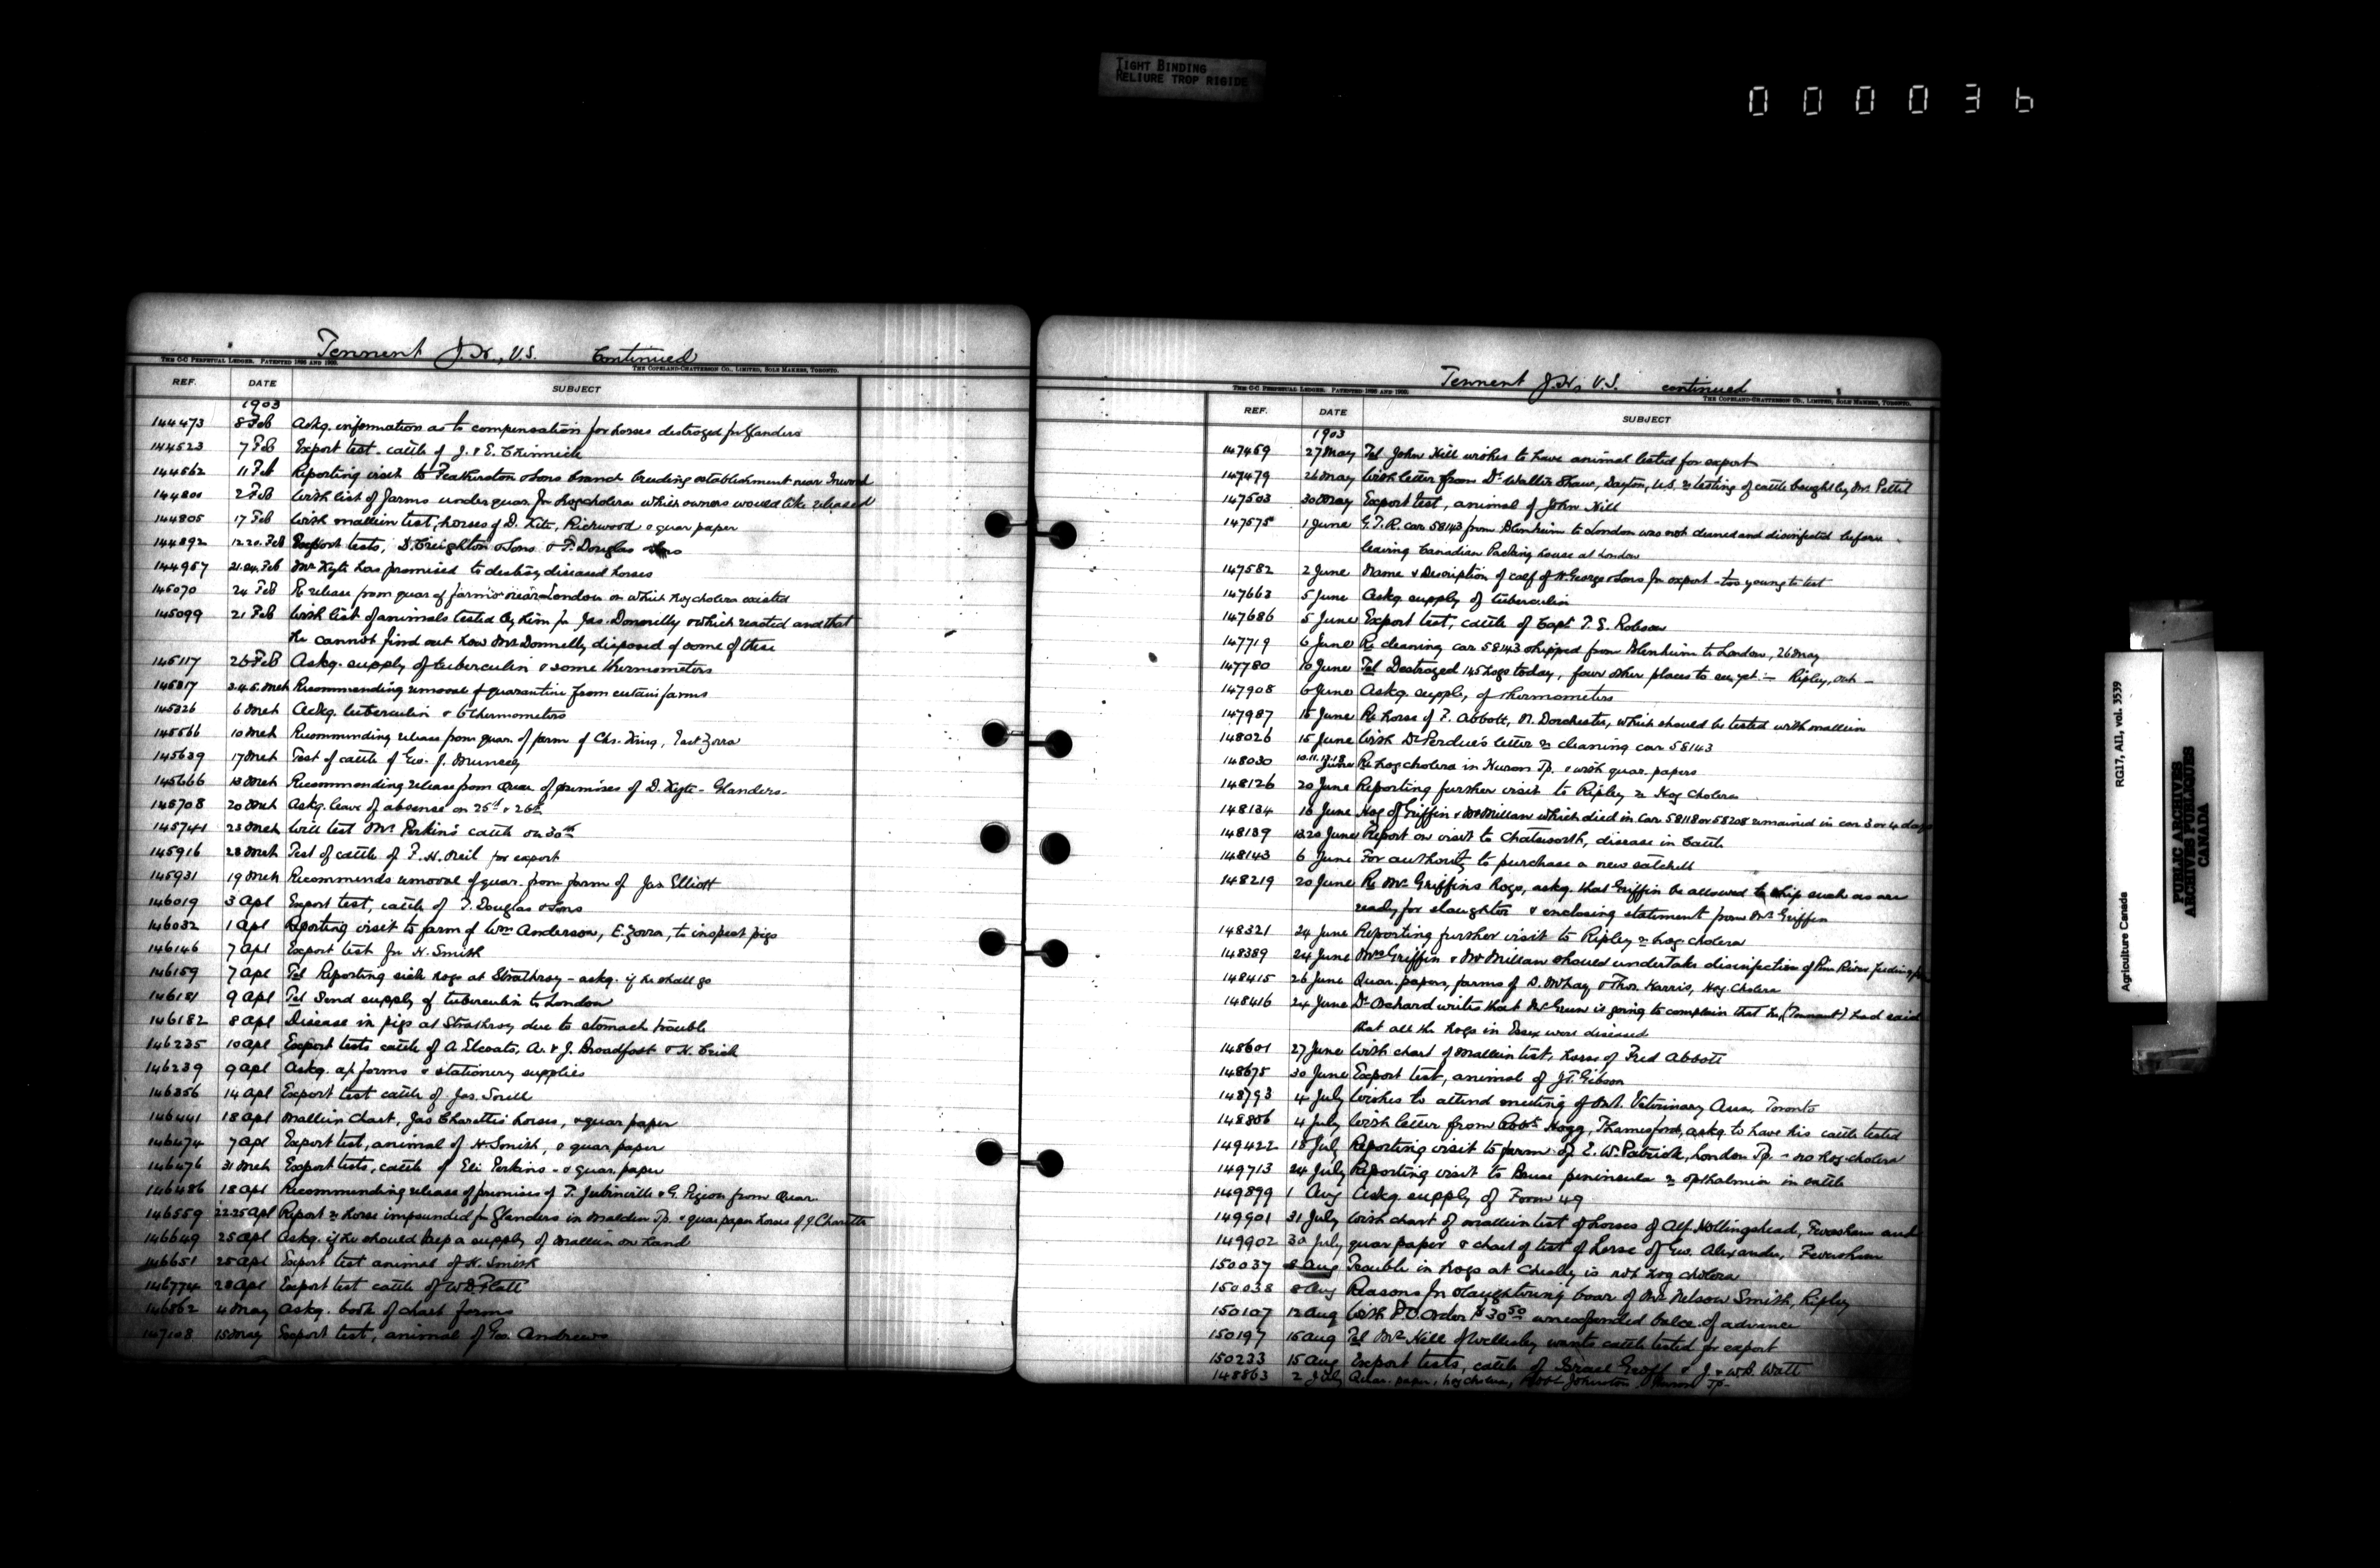 TIGHT BINDING
RELIURE TROP RIGIDE
000036
Tennent J.H., V.S. Continued
THE C-C PERPETUAL LEDGER. PATENTED 1895 AND 1900.
THE COPELAND-CHATTERSON CO., LIMITED, SOLE MAKERS, TORONTO.
REF. DATE SUBJECT
1903
144473 8 Feb Askg. information as to compensation for horses destroyed for Glanders
144523 7 Feb Export test - cattle of J. & E. Chinnick
144562 11 Feb Reporting visit to Featherston & Sons breeding establishment near
144800 2 Feb With list of farms under quar. for hog cholera which owners would like released
144805 17 Feb With mallein test, horses of D. Kite, Richwood & quar paper
144892 12.20. Feb Export tests, D. Creighton & Sons & F. Douglas & Sons
144957 21.24. Feb Mr Kyte has promised to destroy diseased horses
145070 24 Feb Re release from quar of farms near London on which hog cholera existed
145099 21 Feb With list of animals tested by him for Jas. Donnelly & which reacted and that
he cannot find out how Mr Donnelly disposed of some of these
145117 26 Feb Askg. supply of tuberculin & some thermometers
145317 3.4.5. Mch Recommending removal of quarantine from certain farms
145326 6 Mch Askg. tuberculin & 6 thermometers
145566 10 Mch Recommending release from quar. of farm of Chs. King, East Zorra
145639 17 Mch Test of cattle of Geo. J.
145666 18 Mch Recommending release from Quar of premises of D. Kyte - Glanders.
145708 20 Mch Askg. leave of absence on 25th & 26th
145741 23 Mch Will test Mr Perkin's cattle on 30th
145916 28 Mch Test of cattle of F. H. Neil for export
145931 19 Mch Recommends removal of quar. from farm of Jas Elliott
146019 3 Apl Export test, cattle of F. Douglas & Sons
146032 1 Apl Reporting visit to farm of Wm Anderson, E. Zorra, to inspect pigs
146146 7 Apl Export test for H. Smith
146159 7 Apl Tel Reporting sick hogs at Strathroy - askg. if he shall go
146181 9 Apl Tel Send supply of tuberculin to London
146182 8 Apl Disease in pigs at Strathroy due to stomach trouble
146235 10 Apl Export tests cattle of A. Elcoate, A. & J. Broadfoot & H. Crich
146239 9 Apl Askg. a/c forms & stationery supplies
146356 14 Apl Export test cattle of Jas. Snell
146441 18 Apl Mallein chart, Jas Charette's horses, & quar paper
146474 7 Apl Export test, animal of H. Smith, & quar paper
146476 31 Mch Export tests, cattle of Eli Perkins - & quar. paper
146486 18 Apl Recommending release of premises of T. Jubinville & G. Pigeon from Quar.
146559 22.25 Apl Report re horse impounded for Glanders in Malden Tp. & quar paper horses of J Charette
146649 25 Apl Askg. if he should keep a supply of mallein on hand
146651 25 Apl Export test animal of H. Smith
146774 28 Apl Export test cattle of W D Flatt
146862 4 May Askg. book of chart forms
147108 15 May Export test, animal of Geo Andrews
Tennent J.H. V.S. continued
THE C-C PERPETUAL LEDGER. PATENTED 1895 AND 1900.
THE COPELAND-CHATTERSON CO., LIMITED, SOLE MAKERS, TORONTO.
REF. DATE SUBJECT
1903
147459 27 May Tel John Hill wishes to have animal tested for export
147479 26 May With letter from Dr Walter Shaw, Dayton, U.S. re testing of cattle bought by Mr. Pettit
147503 30 May Export test, animal of John Hill
147575 1 June G.T.R. car 58143 from Blenheim to London was not cleaned and disinfected before
leaving Canadian Packing house at London
147582 2 June Name & Description of calf of H. George & Sons for export - too young to test
147663 5 June Askg supply of tuberculin
147686 5 June Export test, cattle of Capt T. E. Robson
147719 6 June Re cleaning car 58143 shipped from Blenheim to London, 26 May
147780 10 June Tel Destroyed 145 hogs today, four other places to - Ripley, Ont -
147908 6 June Askg supply of thermometers
147987 15 June Re horse of F. Abbott, N. Dorchester, which should be tested with mallein
148026 15 June With Dr Perdue's letter re cleaning car 58143
148030 June Re hog cholera in Huron Tp. & with quar. papers
148126 20 June Reporting further visit to Ripley re Hog Cholera
148134 16 June Hog of Griffin & McMillan which died in car 58118 or 58208 remained in car 3 or 4 days
148139 13.20 June Report on visit to Chatsworth, disease in Cattle
148143 6 June For authority to purchase a new satchell
148219 20 June Re Mr Griffins hogs, askg. that Griffin be allowed to ship such as are
ready for slaughter & enclosing statement from Mr Griffin
148321 24 June Reporting further visit to Ripley re hog cholera
148389 24 June Mr Griffin & McMillan should undertake disinfection of Pine River feeding
148415 26 June Quar. papers, farms of D. McKay & Thos. Harris, Hog Cholera
148416 24 June Dr Orchard writes that is going to complain that he, (Tennent) had said
that all the hogs in Essex were diseased
148601 27 June With chart of mallein test, horse of Fred Abbott
148675 30 June Export test, animal of J.T. Gibson
148793 4 July Wishes to attend meeting of Ont. Veterinary Assn, Toronto
148806 4 July With letter from Robt Hogg, Thamesford, askg. to have his cattle tested
149422 18 July Reporting visit to farm of E. W. Patrick, London Tp. - no hog cholera
149713 24 July Reporting visit to Bruce peninsula re opthalmia in cattle
149899 1 Aug Askg. supply of Form 49
149901 31 July With chart of mallein test of horses of Alf Hollingshead, Feversham and
149902 30 July quar paper & chart of test of horse of Geo. Alexander, Feversham
150037 8 Aug Trouble in hogs at Chesley is not hog cholera
150038 8 Aug Reasons for slaughtering boar of Mr Nelson Smith, Ripley
150107 12 Aug With P.O. Order $30.50 unexpended balce. of advance
150197 15 Aug Tel Mr Hill of Wellesley wants cattle tested for export
150233 15 Aug Export tests, cattle of Israel Groff & J. & W.B. Watt
148863 2 July Quar. paper, hog cholera, Robt Johnston, Huron Tp-
Agriculture Canada RG17, AI1, vol. 3539
PUBLIC ARCHIVES
ARCHIVES PUBLIQUES
CANADA